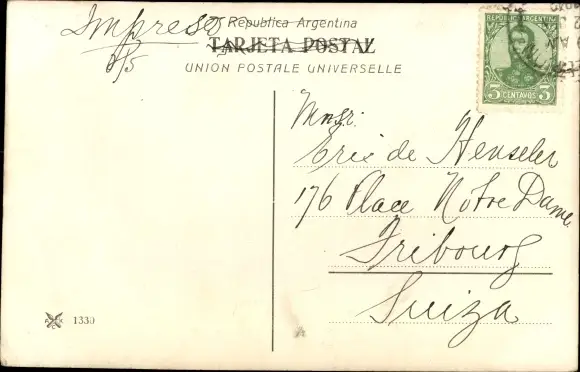 Impreso
República Argentina
TARJETA POSTAL
UNION POSTALE UNIVERSELLE
REPUBLICA ARGENTINA
5 CENTAVOS 5
Monsr:
Eric de Henseler
176 Place Notre Dame
Fribourg
Suiza
1330